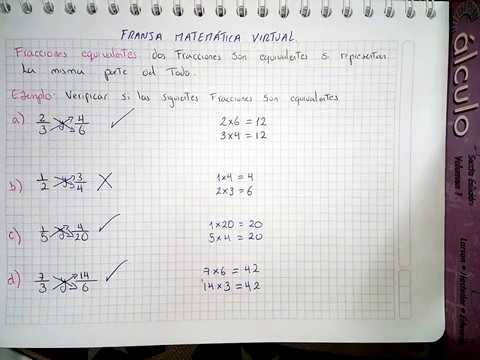 FRANJA MATEMÁTICA VIRTUAL
Fracciones equivalentes dos Fracciones son equivalentes si representan
la misma parte del Todo.
Ejemplo: Verificar si las siguientes Fracciones son equivalentes
a) 2/3 y 4/6 ✓ 2×6 = 12
3×4 = 12
b) 1/2 y 3/4 X 1×4 = 4
2×3 = 6
c) 1/5 y 4/20 ✓ 1×20 = 20
5×4 = 20
d) 7/3 y 14/6 ✓ 7×6 = 42
14×3 = 42
álculo
Sexta Edición
Volumen 1
Larson